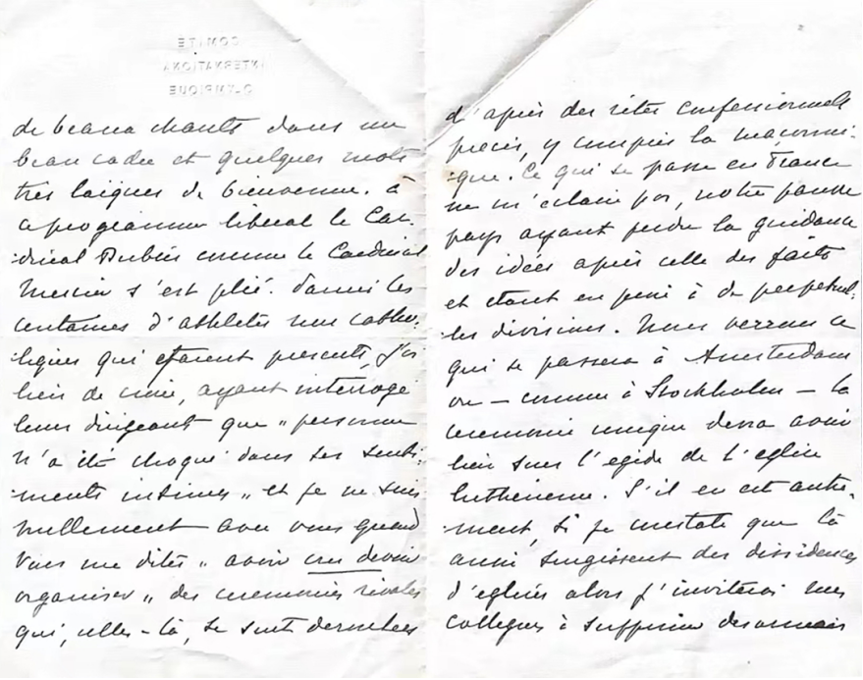 COMITÉ
INTERNATIONA
OLYMPIQUE
de beaux chants dans un
beau cadre et quelques mots
très laïques de bienvenue. à
ce programme libéral le Car-
-dinal Dubois comme le Cardinal
Mercier s'est plié. Parmi les
centaines d'athlètes non catho-
-liques qui étaient présents, j'ai
lieu de croire, ayant interrogé
leurs dirigeant que " personne
n'a été choqué dans ses senti-
-ments intimes " et je ne suis
nullement avec vous quand
vous me dites " avoir cru devoir
organiser " des cérémonies rivales
qui, elles-là, se sont déroulées
d'après des rites confessionnels
précis, y compris la maçonni-
-que. Ce qui se passe en France
ne m'éclaire pas, notre pauvre
pays ayant perdu la guidance
des idées après celle des faits
et étant en proie à de perpétuel-
les divisions. Nous verrons ce
qui se passera à Amsterdam
où - comme à Stockholm - la
cérémonie unique devra avoir
lieu sous l'égide de l'église
luthérienne. S'il en est autre-
-ment, si je constate que là
aussi surgissent des dissidences
d'églises alors j'inviterai mes
collègues à supprimer désormais